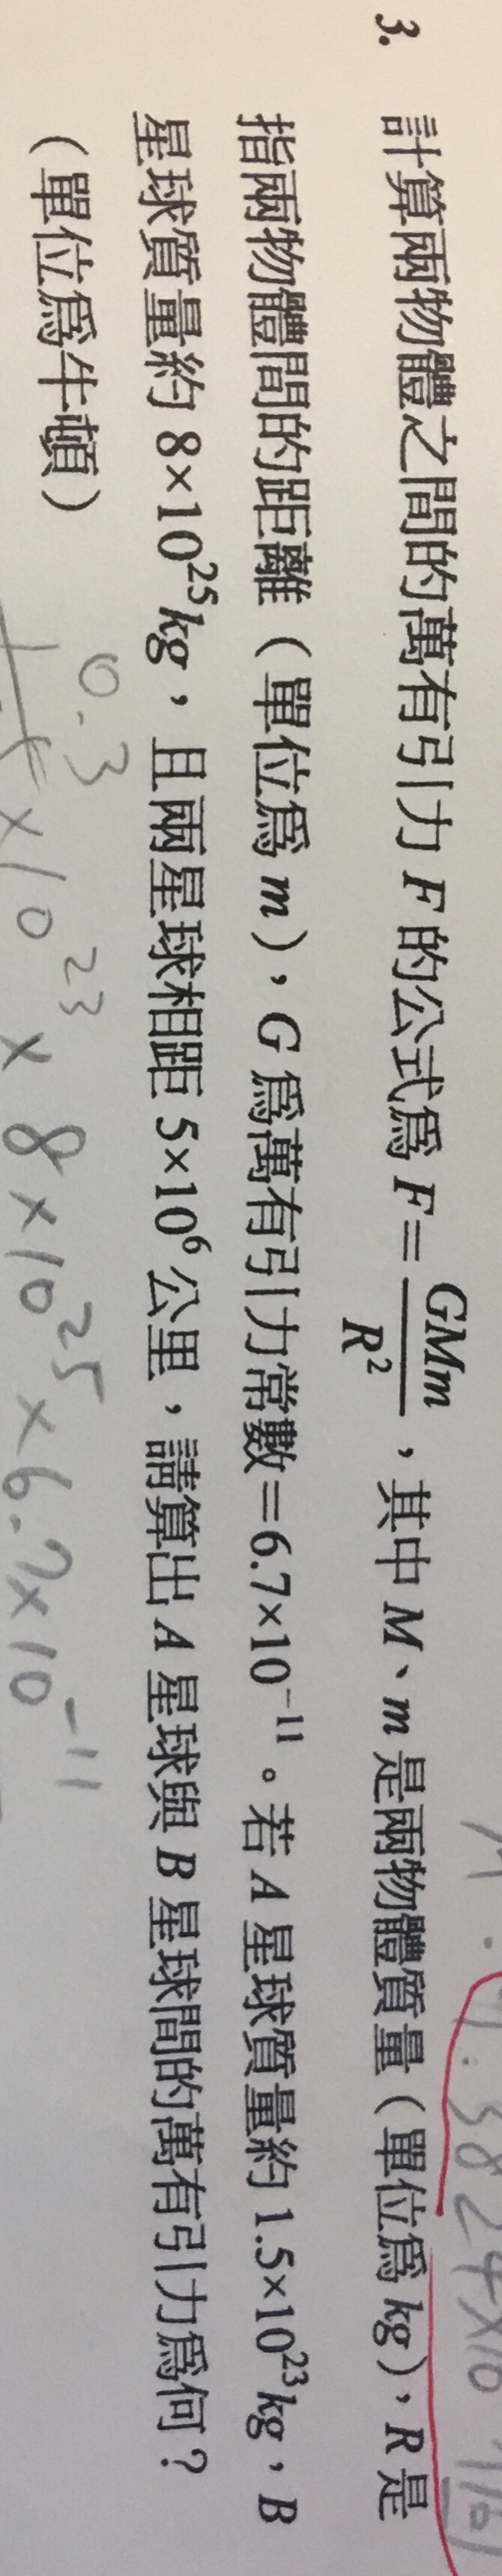 3. 計算兩物體之間的萬有引力 F 的公式爲 F=GMm/R²,其中 M、m 是兩物體質量(單位爲 kg),R 是
指兩物體間的距離(單位爲 m),G 爲萬有引力常數=6.7×10⁻¹¹。若 A 星球質量約 1.5×10²³kg,B
星球質量約 8×10²⁵kg,且兩星球相距 5×10⁶公里,請算出 A 星球與 B 星球間的萬有引力爲何?
(單位爲牛頓)
0.3
×10²³ × 8×10²⁵ × 6.7×10⁻¹¹